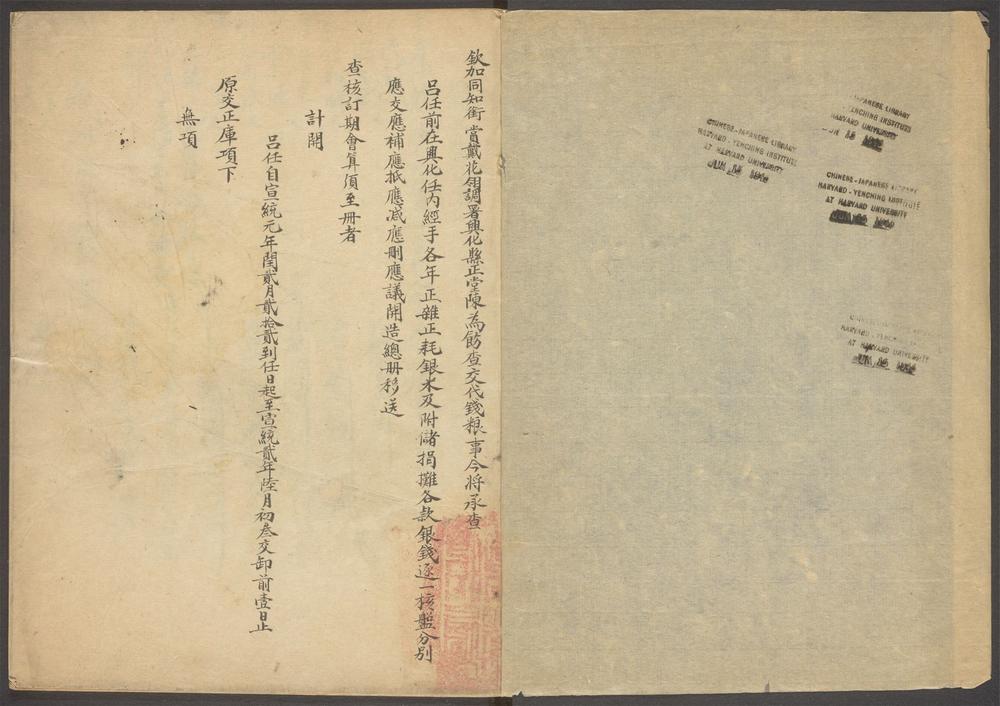 欽加同知銜賞戴花翎調署興化縣正堂陳為飭查交代錢粮事今將承查
呂任前在興化任內經手各年正雜正耗銀米及附儲捐攤各款銀錢逐一核盤分別
應交應補應抵應減應刪應議開造總册移送
查核訂期會算須至册者
計開
呂任自宣統元年閏貳月貳拾貳到任日起至宣統貳年陸月初叁交卸前壹日止
原交正庫項下
無項
CHINESE-JAPANESE LIBRARY
HARVARD-YENCHING INSTITUTE
AT HARVARD UNIVERSITY
JAPANESE LIBRARY
YENCHING INSTITUTE
HARVARD UNIVERSITY
CHINESE-JAPANESE LIBRARY
HARVARD-YENCHING INSTITUTE
AT HARVARD UNIVERSITY
HARVARD-YENCHING
AT HARVARD UNIVERSITY